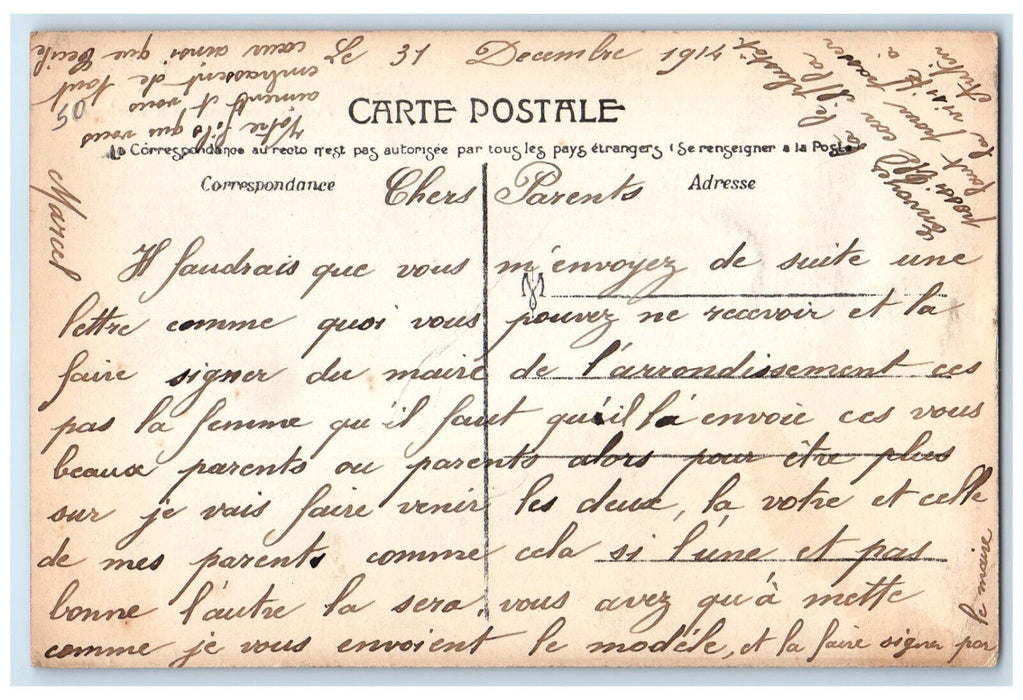 Le 31 Decembre 1914
CARTE POSTALE
La Correspondance au recto n'est pas autorisée par tous les pays étrangers (Se renseigner a la Poste)
Correspondance
Adresse
Chers Parents
Il faudrais que vous m'envoyez de suite une
lettre comme quoi vous pouvez me recevoir et la
faire signer du maire de l'arrondissement ces
pas la femme qu'il faut qu'il la envoie ces vous
beaux parents ou parents alors pour être plus
sur je vais faire venir les deux, la votre et celle
de mes parents comme cela si l'une et pas
bonne l'autre la sera, vous avez qu'à mette
comme je vous envoient le modéle, et la faire signer par
le maire
Envoyez la le plustôt
possible
faut pour passer
la visite à
Votre fils qui vous
aiment et vous
embrassent de tout
coeur ainsi que Cecile
Marcel
50